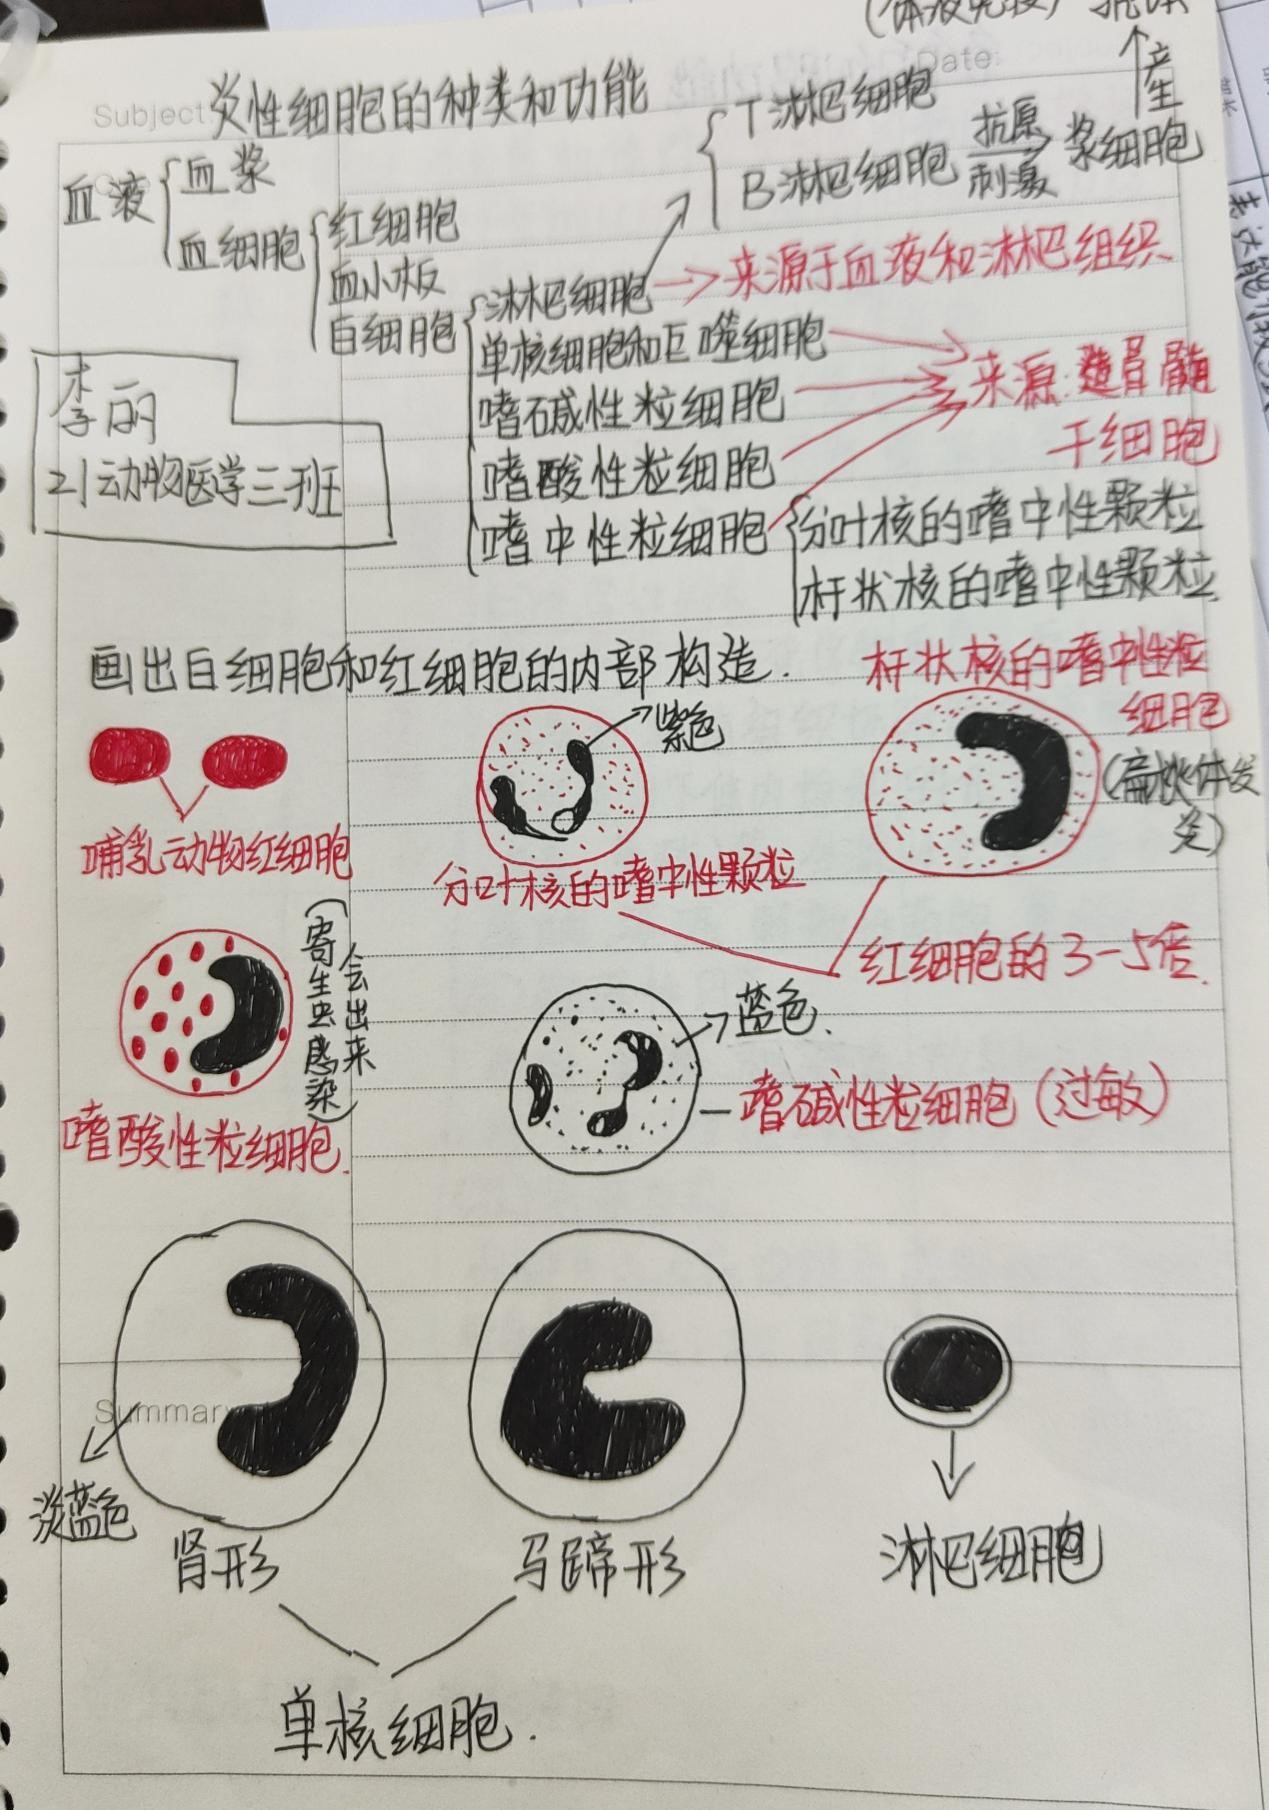 (体液免疫) 抗体
Date:
Subject:
炎性细胞的种类和功能
产生
T淋巴细胞
B淋巴细胞 抗原刺激 浆细胞
血液
血浆
血细胞
红细胞
血小板
白细胞
淋巴细胞 来源于血液和淋巴组织
单核细胞和巨噬细胞
嗜碱性粒细胞
嗜酸性粒细胞
嗜中性粒细胞
来源:造骨髓
干细胞
分叶核的嗜中性颗粒
杆状核的嗜中性颗粒.
李丽
21动物医学三班
画出白细胞和红细胞的内部构造.
杆状核的嗜中性粒
细胞
紫色
(扁桃体发
炎)
哺乳动物红细胞
分叶核的嗜中性颗粒
红细胞的3-5倍.
(寄生虫感染)
会出来
嗜酸性粒细胞.
蓝色.
嗜碱性粒细胞(过敏)
Summary
淡蓝色
肾形
马蹄形
淋巴细胞
单核细胞.